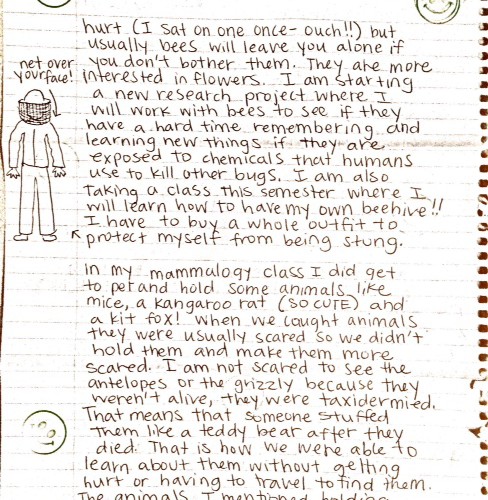 hurt (I sat on one once- ouch!!) but
usually bees will leave you alone if
you don't bother them. They are more
interested in flowers. I am starting
a new research project where I
will work with bees to see if they
have a hard time remembering and
learning new things if they are
exposed to chemicals that humans
use to kill other bugs. I am also
taking a class this semester where I
will learn how to have my own beehive!!
I have to buy a whole outfit to
protect myself from being stung.
net over
your face!
In my mammalogy class I did get
to pet and hold some animals like
mice, a kangaroo rat (SO CUTE) and
a kit fox! When we caught animals
they were usually scared so we didn't
hold them and make them more
scared. I am not scared to see the
antelopes or the grizzly because they
weren't alive, they were taxidermied.
That means that someone stuffed
them like a teddy bear after they
died. That is how we were able to
learn about them without getting
hurt or having to travel to find them.
The animals I mentioned holding